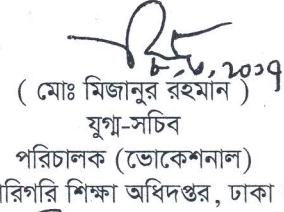 ( মোঃ মিজানুর রহমান )
যুগ্ম-সচিব
পরিচালক (ভোকেশনাল)
রিগরি শিক্ষা অধিদপ্তর, ঢাকা